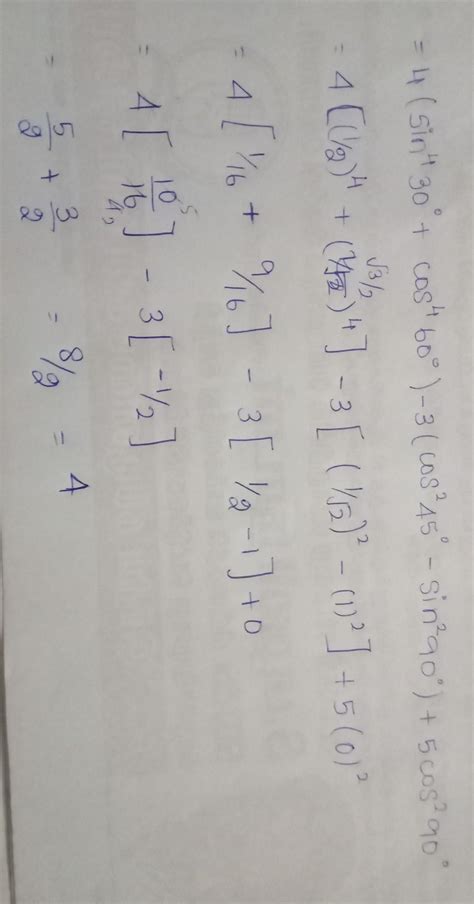 = 4 (sin⁴30° + cos⁴60°) - 3 (cos²45° - sin²90°) + 5cos²90°
= 4 [(1/2)⁴ + (√3/2)⁴] - 3 [(1/√2)² - (1)²] + 5(0)²
= 4 [1/16 + 9/16] - 3 [1/2 - 1] + 0
= 4 [10/16] - 3 [-1/2]
= 5/2 + 3/2 = 8/2 = 4